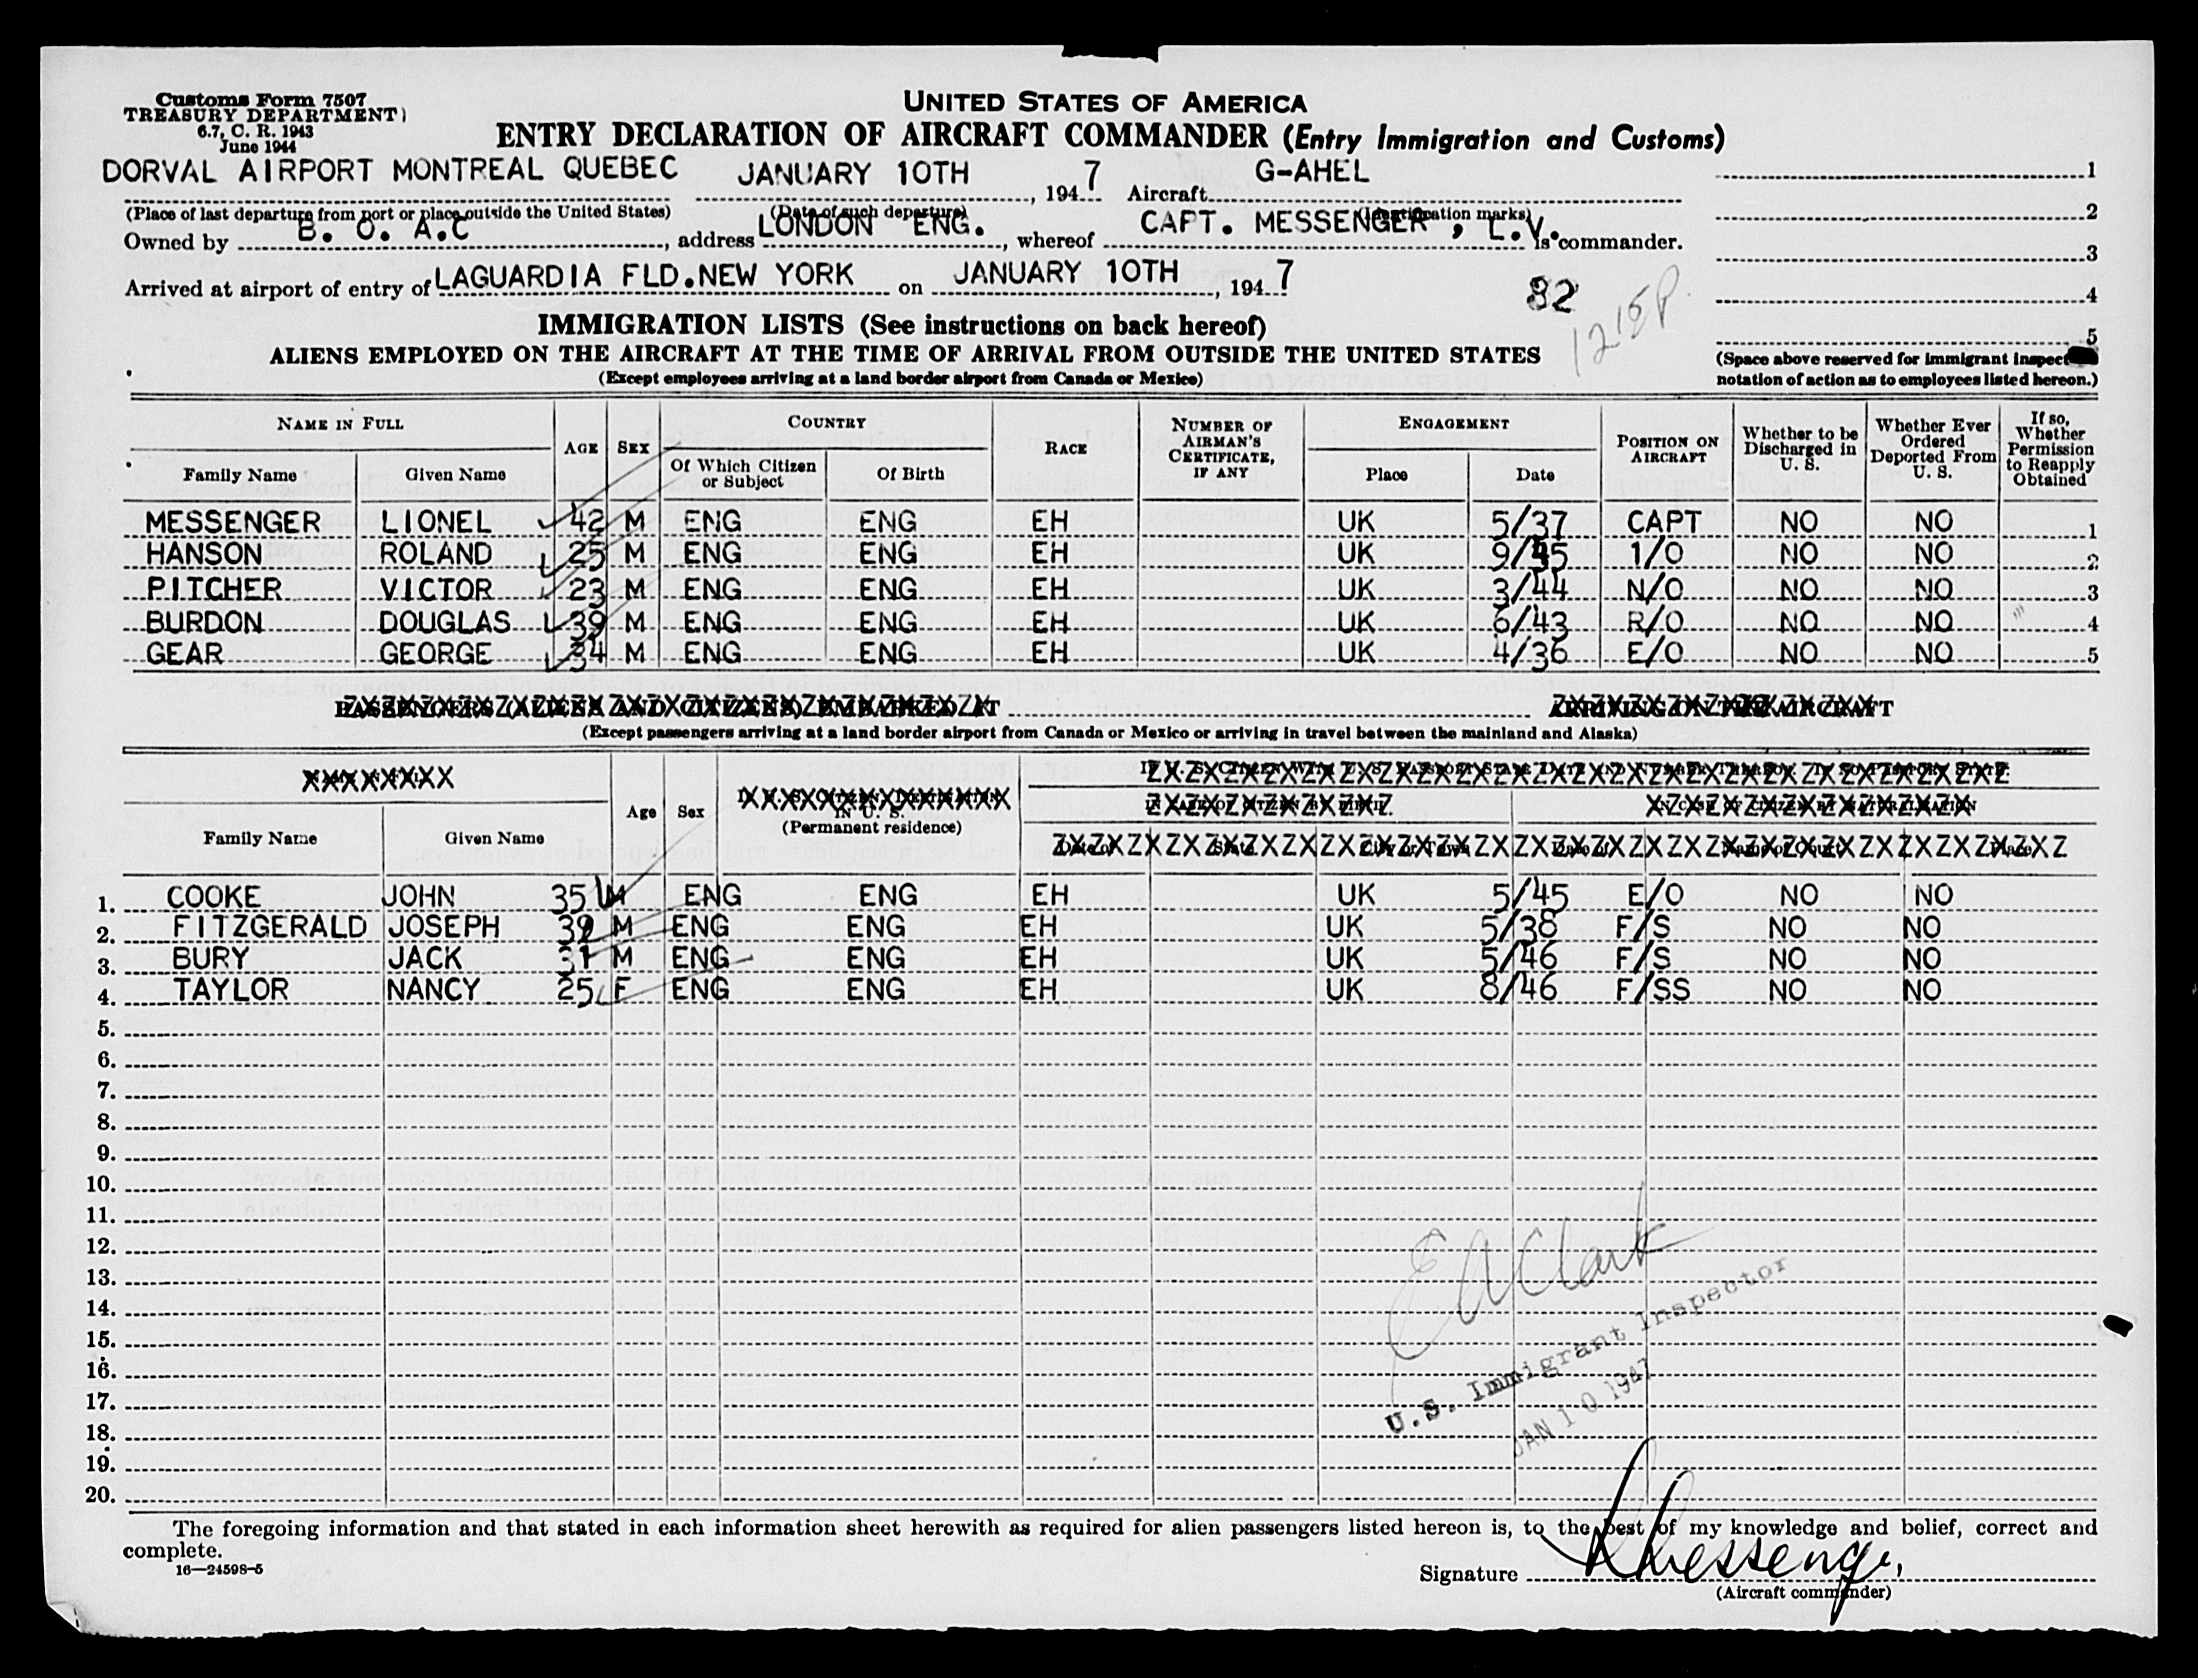 Customs Form 7507
TREASURY DEPARTMENT
6.7, C. R. 1943
June 1944
UNITED STATES OF AMERICA
ENTRY DECLARATION OF AIRCRAFT COMMANDER (Entry Immigration and Customs)
DORVAL AIRPORT MONTREAL QUEBEC JANUARY 10TH, 1947 Aircraft G-AHEL
(Place of last departure from port or place outside the United States) (Date of such departure) (Identification marks)
Owned by B. O. A.C, address LONDON ENG., whereof CAPT. MESSENGER, L.V. is commander.
Arrived at airport of entry of LAGUARDIA FLD.NEW YORK on JANUARY 10TH, 1947
82
1215P
1
2
3
4
5
(Space above reserved for immigrant inspect
notation of action as to employees listed hereon.)
IMMIGRATION LISTS (See instructions on back hereof)
ALIENS EMPLOYED ON THE AIRCRAFT AT THE TIME OF ARRIVAL FROM OUTSIDE THE UNITED STATES
(Except employees arriving at a land border airport from Canada or Mexico)
NAME IN FULL AGE SEX COUNTRY RACE NUMBER OF AIRMAN'S CERTIFICATE, IF ANY ENGAGEMENT POSITION ON AIRCRAFT Whether to be Discharged in U. S. Whether Ever Ordered Deported From U. S. If so, Whether Permission to Reapply Obtained
Family Name Given Name Of Which Citizen or Subject Of Birth Place Date
MESSENGER LIONEL 42 M ENG ENG EH UK 5/37 CAPT NO NO 1
HANSON ROLAND 25 M ENG ENG EH UK 9/45 1/O NO NO 2
PITCHER VICTOR 23 M ENG ENG EH UK 3/44 N/O NO NO 3
BURDON DOUGLAS 39 M ENG ENG EH UK 6/43 R/O NO NO 4
GEAR GEORGE 34 M ENG ENG EH UK 4/36 E/O NO NO 5
(Except passengers arriving at a land border airport from Canada or Mexico or arriving in travel between the mainland and Alaska)
Age Sex
IN U. S.
(Permanent residence)
Family Name Given Name
1. COOKE JOHN 35 M ENG ENG EH UK 5/45 E/O NO NO
2. FITZGERALD JOSEPH 39 M ENG ENG EH UK 5/38 F/S NO NO
3. BURY JACK 31 M ENG ENG EH UK 5/46 F/S NO NO
4. TAYLOR NANCY 25 F ENG ENG EH UK 8/46 F/SS NO NO
5.
6.
7.
8.
9.
10.
11.
12.
13.
14.
15.
16.
17.
18.
19.
20.
E A Clark
U.S. Immigrant Inspector
JAN 10 1947
The foregoing information and that stated in each information sheet herewith as required for alien passengers listed hereon is, to the best of my knowledge and belief, correct and
complete.
16—24598-5
Signature L Messenger
(Aircraft commander)